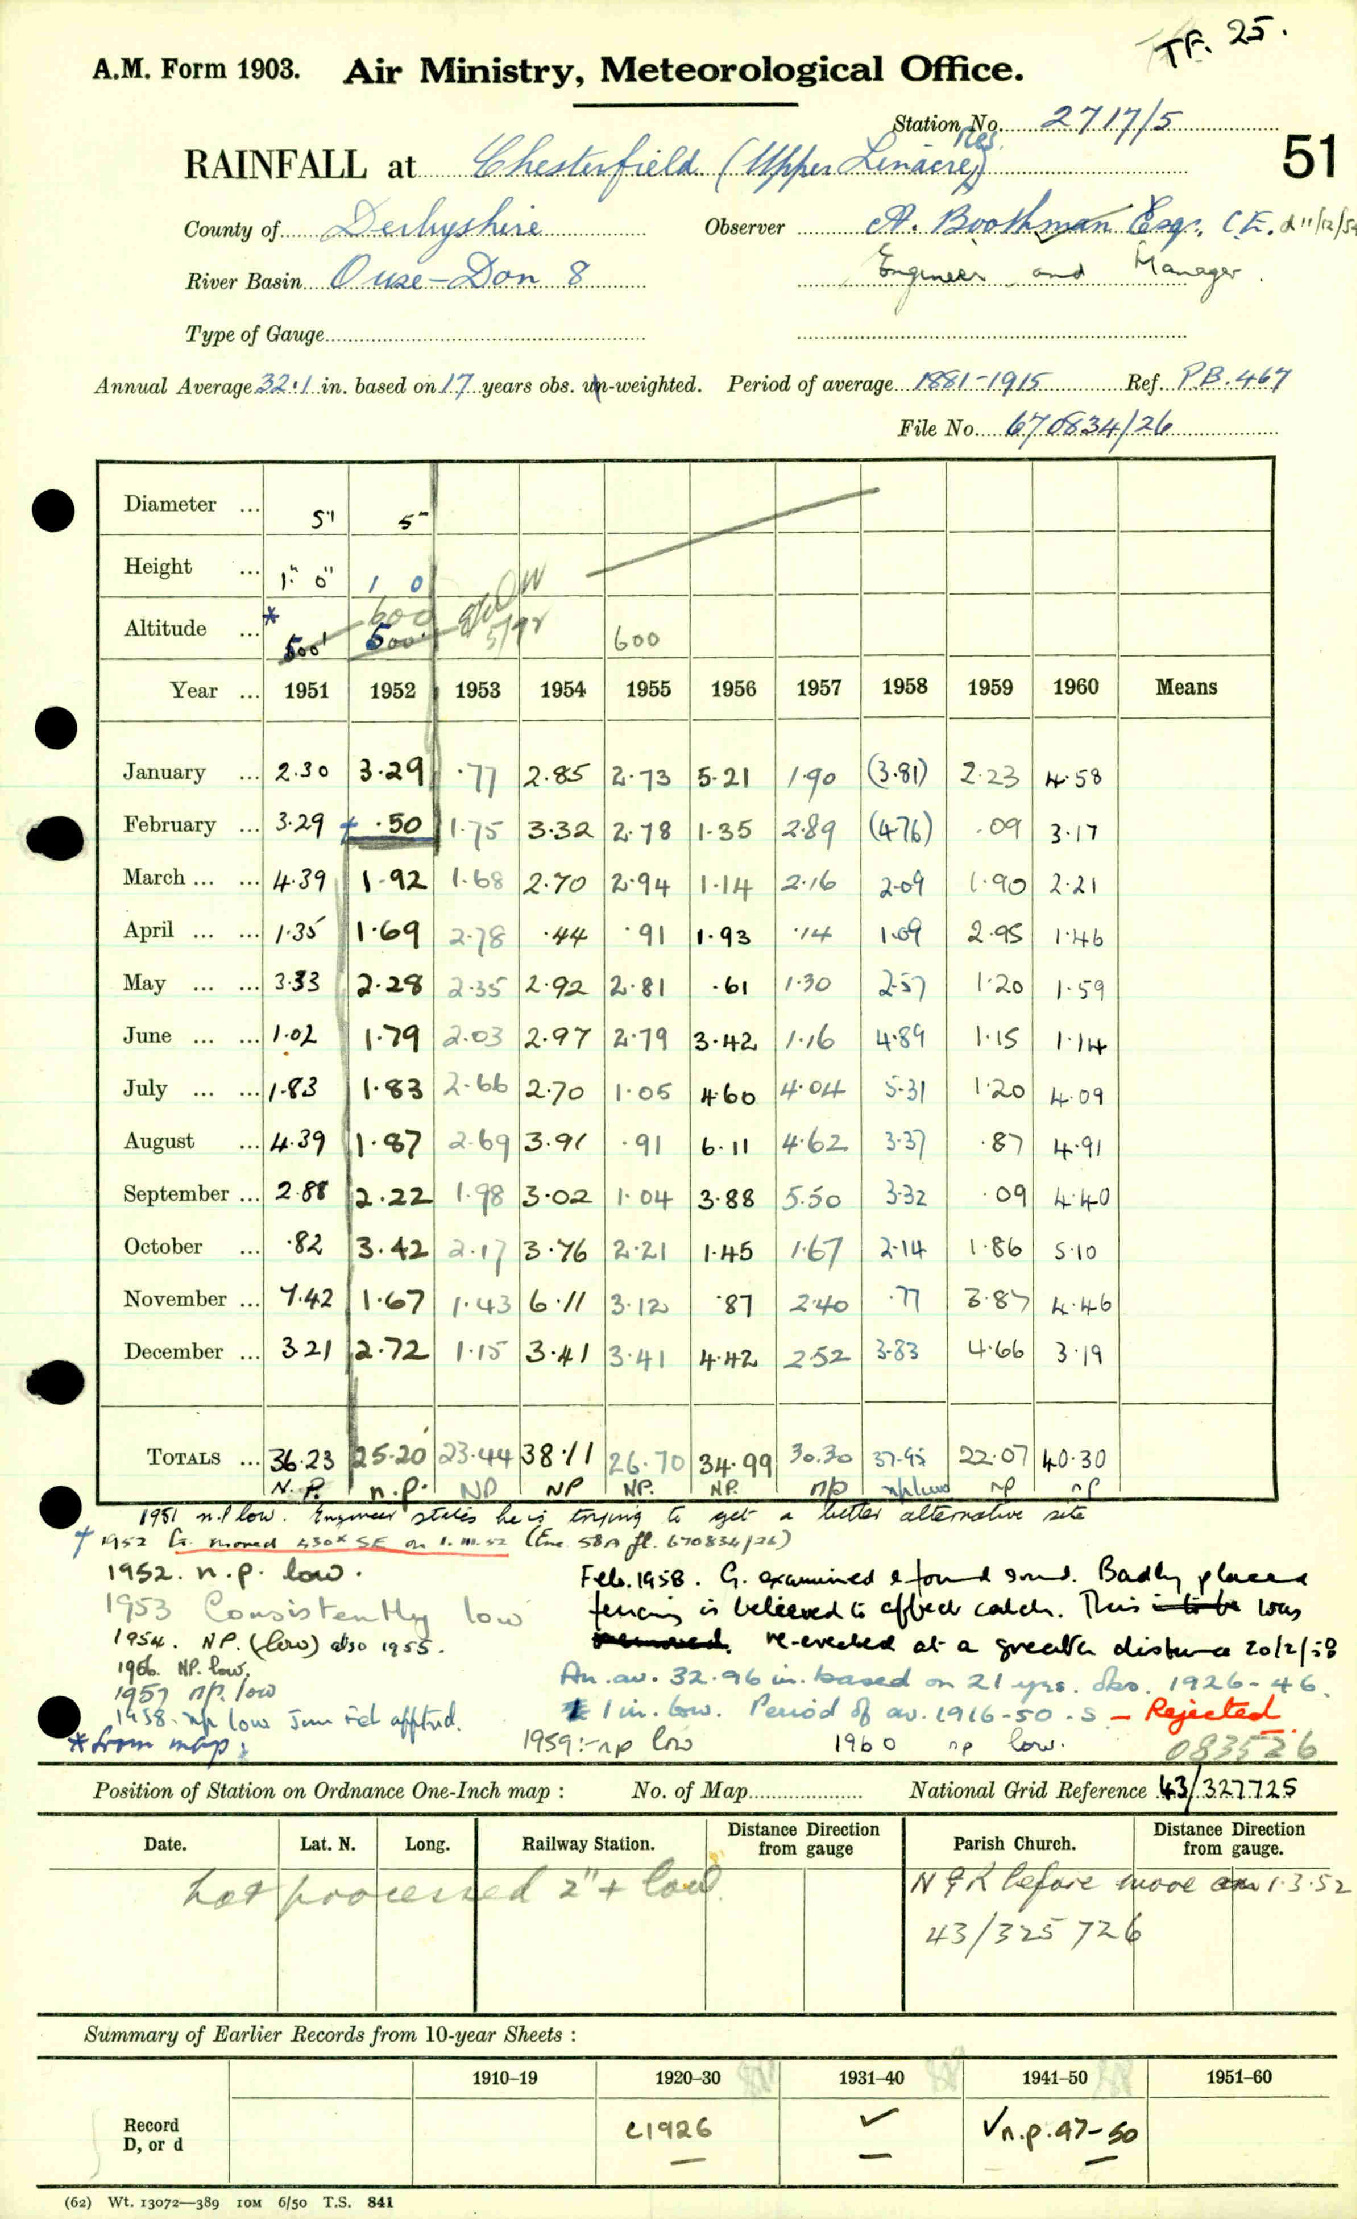 TF. 25.
A.M. Form 1903. Air Ministry, Meteorological Office.
Station No. 2717/5
51
RAINFALL at Chesterfield (Upper Linacre Res.)
County of Derbyshire Observer A. Boothman Esq., C.E. d 11/12/54
River Basin Ouse-Don 8 Engineer and Manager.
Type of Gauge
Annual Average 32.1 in. based on 17 years obs. un-weighted. Period of average 1881-1915 Ref. P.B. 467
File No. 670834/26
Diameter ... 5" 5"
Height ... 1' 0" 1 0
Altitude ... * 500' 600 500' 5/72 600
Year ... 1951 1952 1953 1954 1955 1956 1957 1958 1959 1960 Means
January ... 2.30 3.29 .77 2.85 2.73 5.21 1.90 (3.81) 2.23 4.58
February ... 3.29 † .50 1.75 3.32 2.78 1.35 2.89 (4.76) .09 3.17
March ... ... 4.39 1.92 1.68 2.70 2.94 1.14 2.16 2.09 1.90 2.21
April ... ... 1.35 1.69 2.78 .44 .91 1.93 .14 1.09 2.95 1.46
May ... ... 3.33 2.28 2.35 2.92 2.81 .61 1.30 2.57 1.20 1.59
June ... ... 1.02 1.79 2.03 2.97 2.79 3.42 1.16 4.89 1.15 1.14
July ... ... 1.83 1.83 2.66 2.70 1.05 4.60 4.04 5.31 1.20 4.09
August ... 4.39 1.87 2.69 3.91 .91 6.11 4.62 3.37 .87 4.91
September ... 2.88 2.22 1.98 3.02 1.04 3.88 5.50 3.32 .09 4.40
October ... .82 3.42 2.17 3.76 2.21 1.45 1.67 2.14 1.86 5.10
November ... 7.42 1.67 1.43 6.11 3.12 .87 2.40 .77 3.87 4.46
December ... 3.21 2.72 1.15 3.41 3.41 4.42 2.52 3.83 4.66 3.19
TOTALS ... 36.23 25.20 23.44 38.11 26.70 34.99 30.30 37.95 22.07 40.30
N.P. n.p. NP NP NP. NP. np np low np np
1951 n.p low. Engineer states he is trying to get a better alternative site
† 1952 G. moved 430x SE on 1.III.52 (Enc. 58A fl. 670834/26)
1952. n.p. low.
1953 Consistently low
1954. NP. (low) also 1955.
1956. NP. low.
1957 np. low
1958. np low Jan Feb apptnd.
* from map.
Feb. 1958. G. examined & found sound. Badly placed
fencing is believed to affect catch. This is to be was
removed. re-erected at a greater distance 20/2/58
An. av. 32.96 in. based on 21 yrs. obs. 1926-46.
1 in. low. Period of av. 1916-50 . S — Rejected
1959:- np low 1960 np low.
083526
Position of Station on Ordnance One-Inch map : No. of Map National Grid Reference 43/327725
Date. Lat. N. Long. Railway Station. Distance Direction from gauge Parish Church. Distance Direction from gauge.
Not processed 2" + low
N G R before move on 1.3.52
43/325 726
Summary of Earlier Records from 10-year Sheets :
1910–19 1920–30 1931–40 1941–50 1951–60
Record D, or d c1926 ✓ ✓ n.p. 47-50
(62) Wt. 13072—389 10M 6/50 T.S. 841